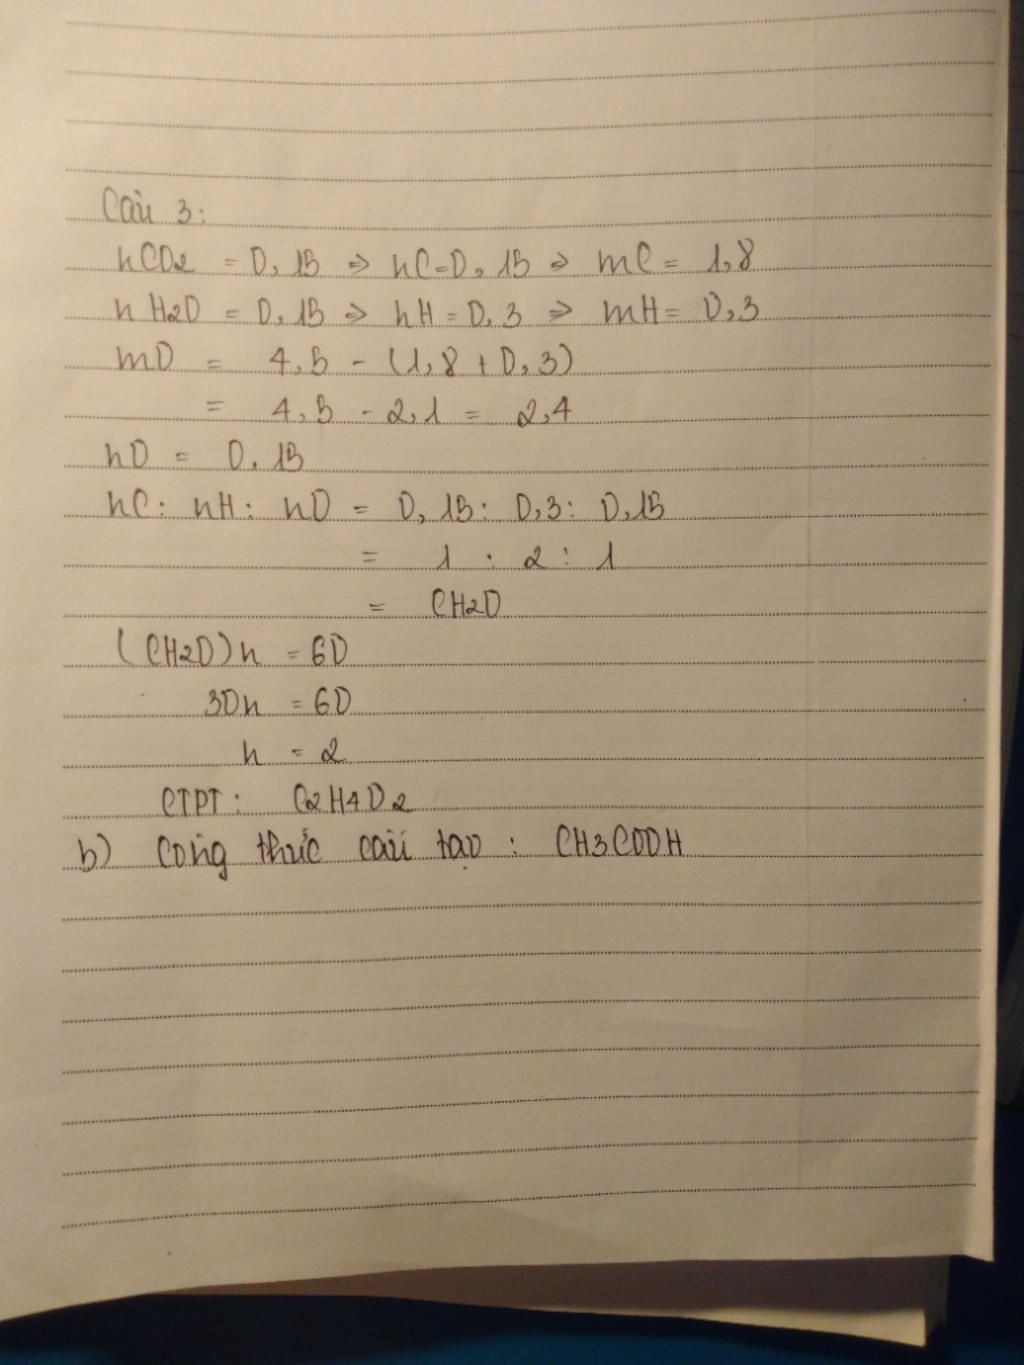 Câu 3:
nCO2 = 0,15 => nC=0,15 => mC = 1,8
nH2O = 0,15 => nH = 0,3 => mH = 0,3
mO = 4,5 - (1,8 + 0,3)
= 4,5 - 2,1 = 2,4
nO = 0,15
nC: nH: nO = 0,15: 0,3: 0,15
= 1 : 2 : 1
= CH2O
(CH2O)n = 60
30n = 60
n = 2
CTPT: C2H4O2
b) Công thức cấu tạo : CH3COOH